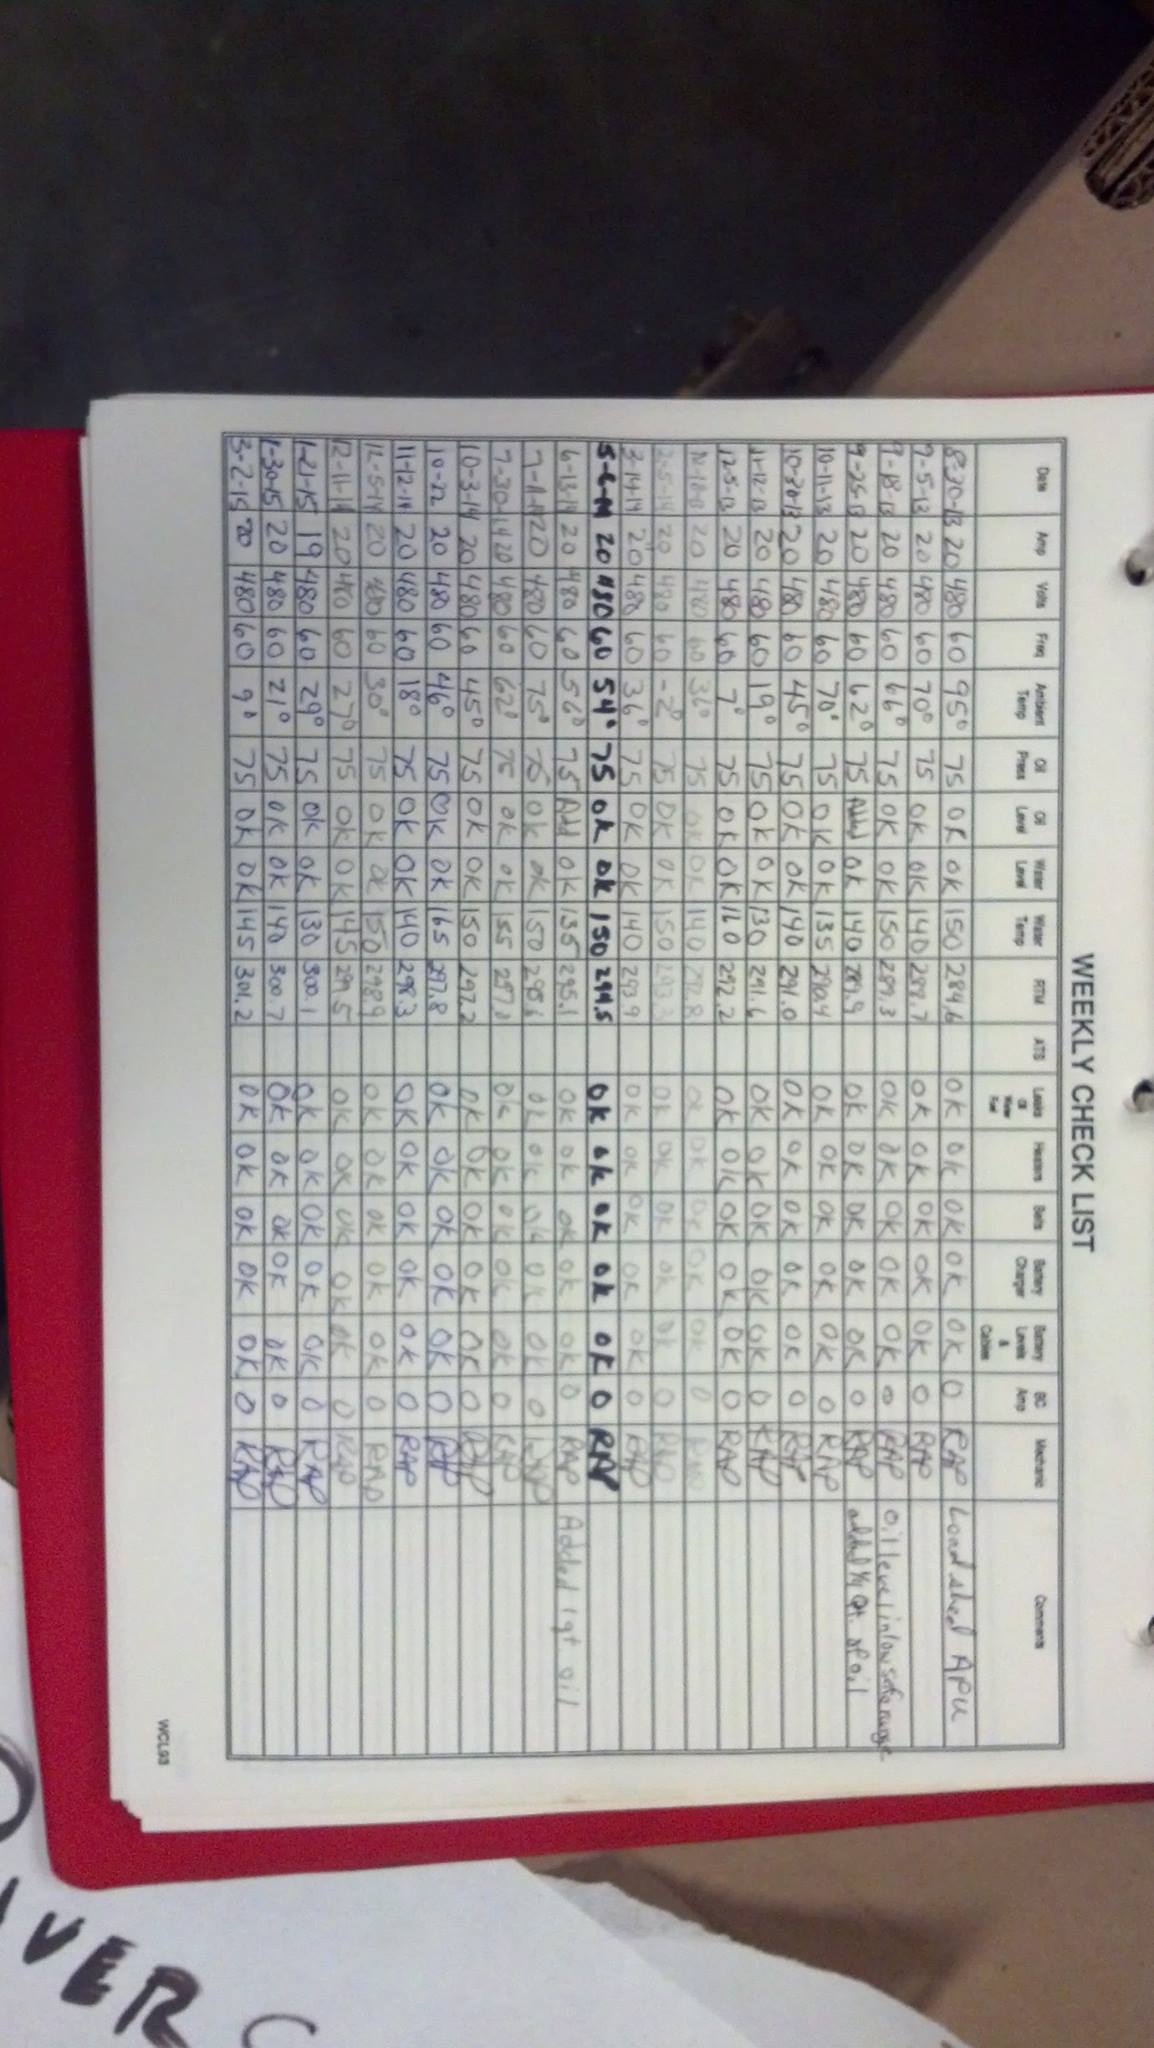 WEEKLY CHECK LIST
Date Amp Volts Freq Ambient Temp Oil Press Oil Level Water Level Water Temp RTM ATS Leaks Oil Water Fuel Heaters Belts Battery Charger Battery Levels & Cables BC Amp Mechanic Comments
8-30-13 20 480 60 95° 75 OK OK 150 284.6 OK OK OK OK OK 0 RAP Load shed APU
9-5-13 20 480 60 70° 75 OK OK 140 288.7 OK OK OK OK OK 0 RAP
9-18-13 20 480 60 66° 75 OK OK 150 289.3 OK OK OK OK OK 0 RAP Oil level in low safe range
9-25-13 20 480 60 62° 75 Added OK 140 289.9 OK OK OK OK OK 0 RAP added Qt. of oil
10-11-13 20 480 60 70° 75 OK OK 135 290.4 OK OK OK OK OK 0 RAP
10-30-13 20 480 60 45° 75 OK OK 140 291.0 OK OK OK OK OK 0 RAP
11-12-13 20 480 60 19° 75 OK OK 130 291.6 OK OK OK OK OK 0 RAP
12-5-13 20 480 60 7° 75 OK OK 160 292.2 OK OK OK OK OK 0 RAP
20 480 60 36° 75 OK OK 140 292.8 OK OK OK OK OK 0 RAP
2-5-14 20 480 60 -2° 75 OK OK 150 293.3 OK OK OK OK OK 0 RAP
3-14-14 20 480 60 36° 75 OK OK 140 293.9 OK OK OK OK OK 0 RAP
5-6-14 20 480 60 54° 75 OK OK 150 294.5 OK OK OK OK OK 0 RAP
6-13-14 20 480 60 56° 75 Add OK 135 295.1 OK OK OK OK OK 0 RAP Added 1 qt oil
20 480 60 75° 75 OK OK 150 OK OK OK OK OK 0 RAP
7-30-14 20 480 60 62° 75 OK OK 155 OK OK OK OK OK 0 RAP
10-3-14 20 480 60 45° 75 OK OK 150 297.2 OK OK OK OK OK 0 RAP
10-22 20 480 60 46° 75 OK OK 165 297.8 OK OK OK OK OK 0 RAP
11-12-14 20 480 60 18° 75 OK OK 140 298.3 OK OK OK OK OK 0 RAP
12-5-14 20 480 60 30° 75 OK OK 150 298.9 OK OK OK OK OK 0 RAP
12-11-14 20 480 60 27° 75 OK OK 145 299.5 OK OK OK OK OK 0 RAP
1-21-15 19 480 60 29° 75 OK OK 130 300.1 OK OK OK OK OK 0 RAP
1-30-15 20 480 60 21° 75 OK OK 140 300.7 OK OK OK OK OK 0 RAP
3-2-15 20 480 60 9° 75 OK OK 145 301.2 OK OK OK OK OK 0 RAP
WCL93